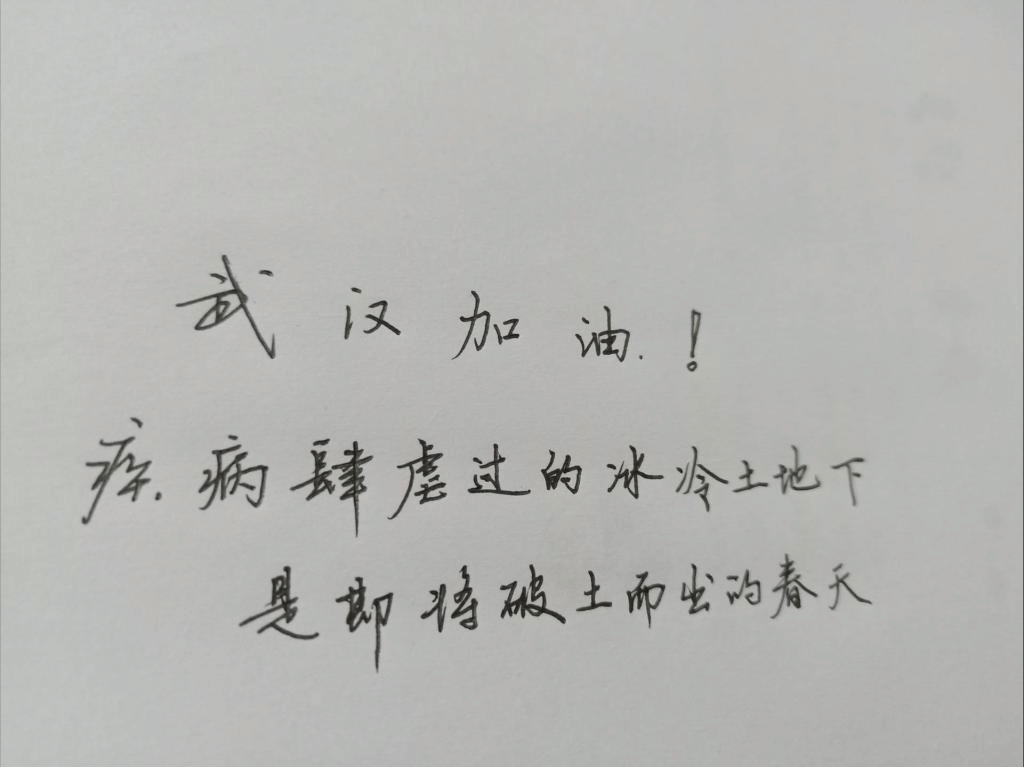 武汉加油！
疾病肆虐过的冰冷土地下
是即将破土而出的春天